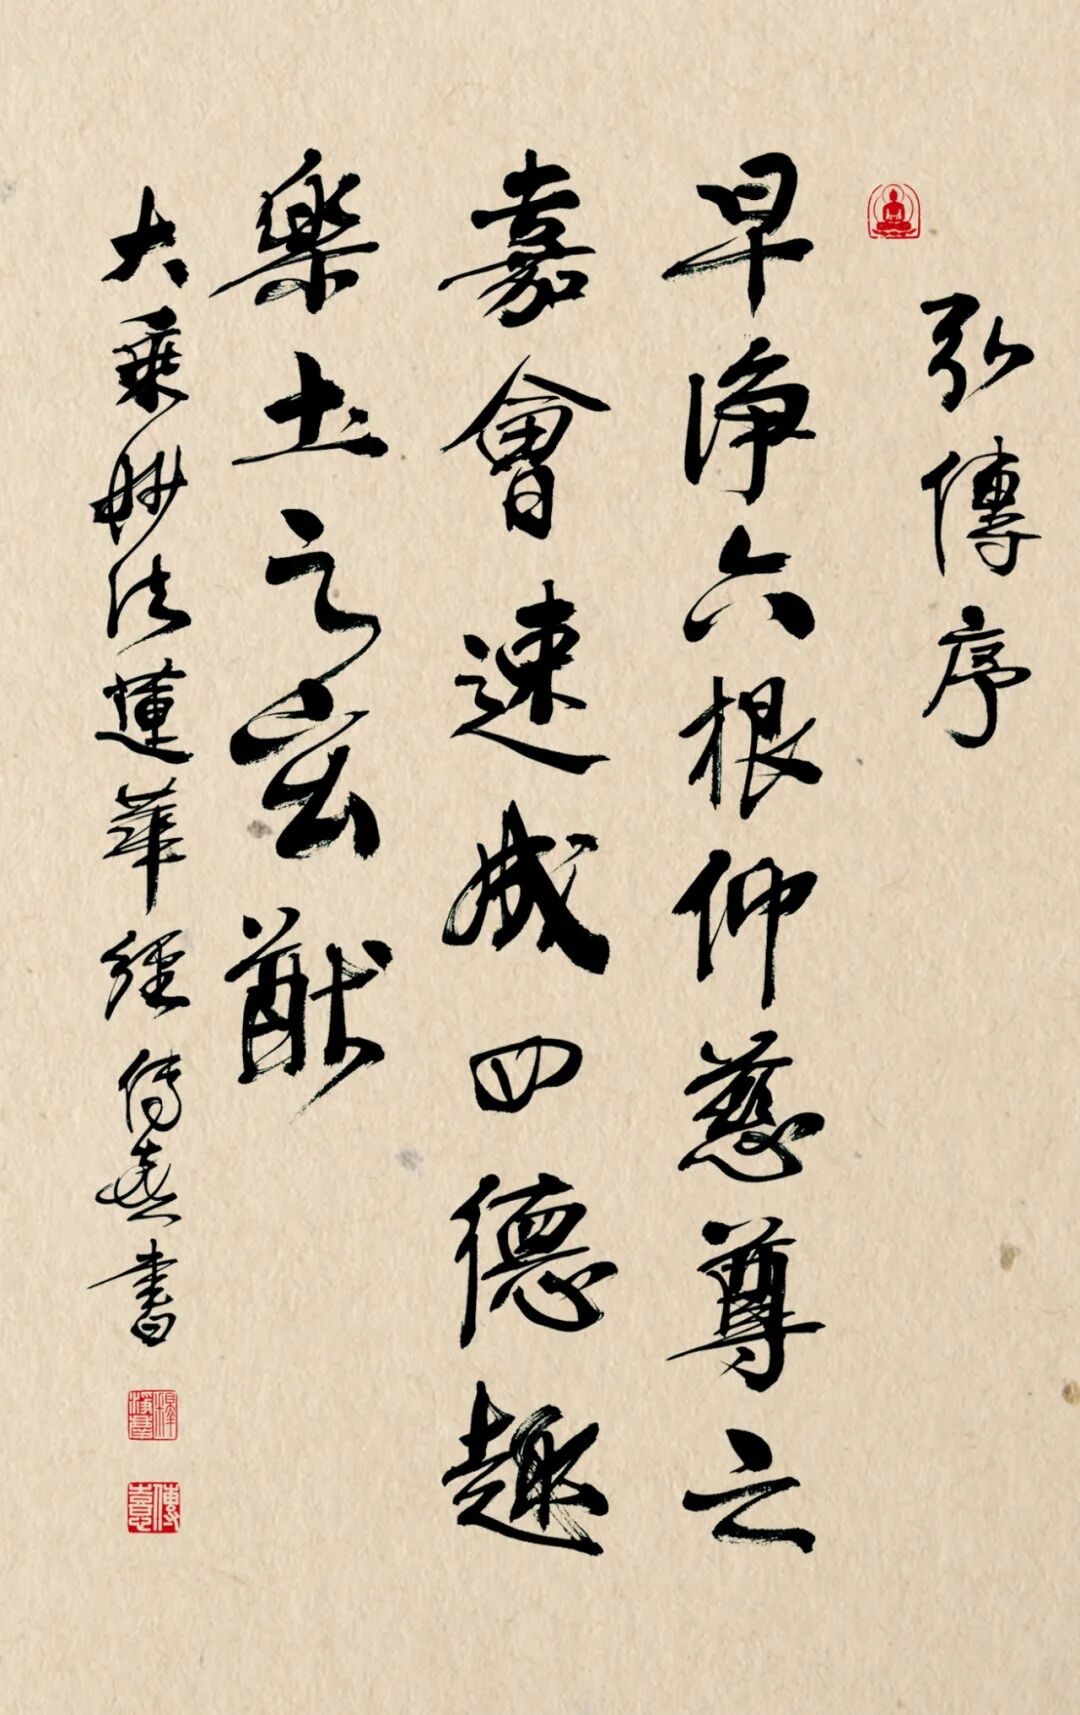 弘傳序
早淨六根仰慈尊之
嘉會速成四德趣
樂土之玄猷
大乘妙法蓮華經 傳喜書
傳喜